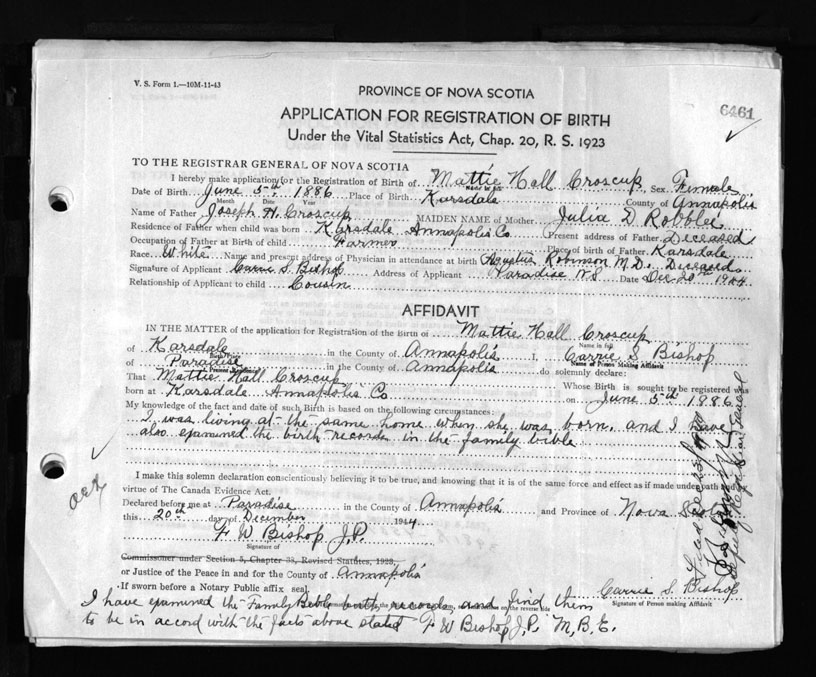 V. S. Form 1.—10M-11-43
PROVINCE OF NOVA SCOTIA
6461
APPLICATION FOR REGISTRATION OF BIRTH
Under the Vital Statistics Act, Chap. 20, R. S. 1923
TO THE REGISTRAR GENERAL OF NOVA SCOTIA
I hereby make application for the Registration of Birth of Mattie Hall Croscup Sex Female
Name in full
Date of Birth June 5th 1886 Place of Birth Karsdale County of Annapolis
Month Date Year
Name of Father Joseph H. Croscup MAIDEN NAME of Mother Julia D Robblee
Residence of Father when child was born Karsdale Annapolis Co Present address of Father Deceased
Occupation of Father at Birth of child Farmer Place of birth of Father Karsdale
Race White Name and present address of Physician in attendance at birth Robinson M.D. Deceased
Signature of Applicant Carrie S Bishop Address of Applicant Paradise N S Date Dec 20th 1944
Relationship of Applicant to child Cousin
AFFIDAVIT
IN THE MATTER of the application for Registration of the Birth of Mattie Hall Croscup
Name in full
of Karsdale in the County of Annapolis I, Carrie S Bishop
Birth Place Name of Person Making Affidavit
of Paradise in the County of Annapolis do solemnly declare:
Present Residence
That Mattie Hall Croscup Whose Birth is sought to be registered was
born at Karsdale Annapolis Co on June 5th 1886
My knowledge of the fact and date of such Birth is based on the following circumstances:
I was living at the same home when she was born. and I have
also examined the birth records in the family bible
I make this solemn declaration conscientiously believing it to be true, and knowing that it is of the same force and effect as if made under oath and by
virtue of The Canada Evidence Act.
Declared before me at Paradise in the County of Annapolis and Province of Nova Scotia
this 20th day of December 1944
F W Bishop J.P.
Signature of
Commissioner under Section 5, Chapter 38, Revised Statutes, 1923,
or Justice of the Peace in and for the County of Annapolis
If sworn before a Notary Public affix seal.
Carrie S. Bishop
Signature of Person making Affidavit
I have examined the Family Bible birth records and find them
on the reverse side
to be in accord with the facts above stated F W Bishop J.P. M.B.E.
Deputy Registrar General